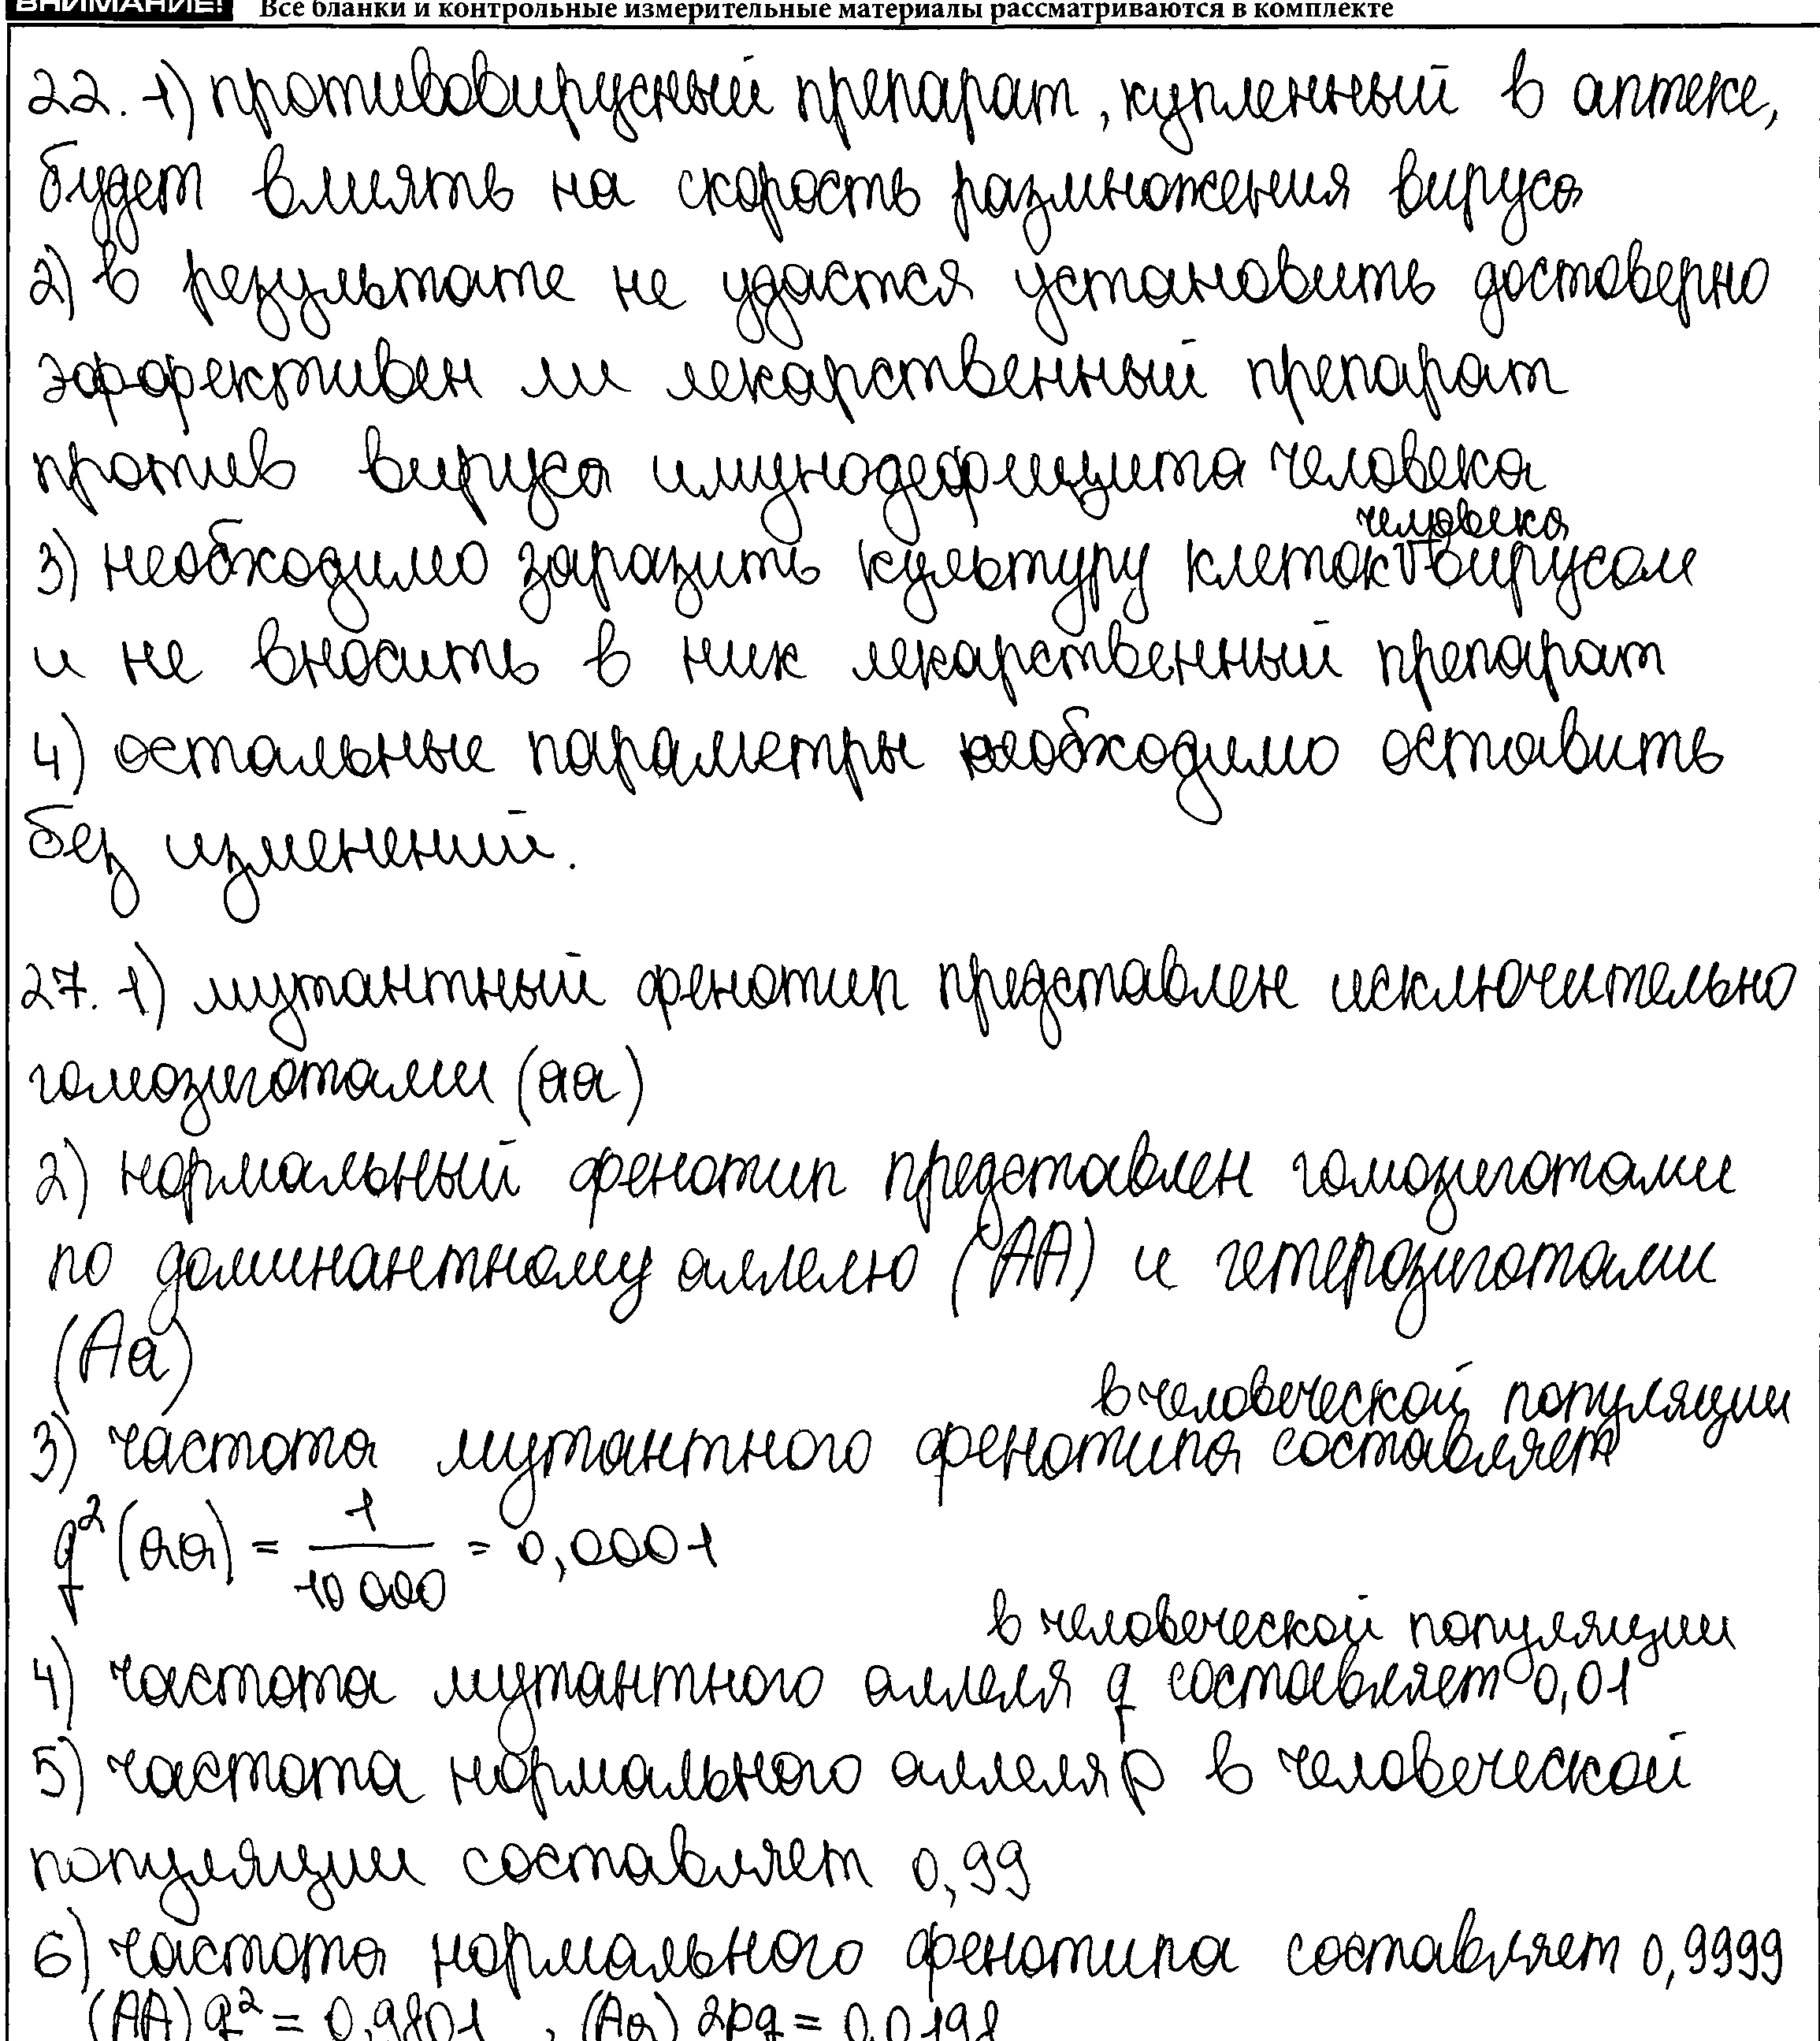 ВНИМАНИЕ! Все бланки и контрольные измерительные материалы рассматриваются в комплекте
22. 1) противовирусный препарат, купленный в аптеке,
будет влиять на скорость размножения вируса
2) в результате не удастся установить достоверно
эффективен ли лекарственный препарат
против вируса имунодефицита человека
человека
3) необходимо заразить культуру клеток вирусом
и не вносить в них лекарственный препарат
4) остальные параметры необходимо оставить
без изменений.
27. 1) мутантный фенотип представлен исключительно
гомозиготами (aa)
2) нормальный фенотип представлен гомозиготами
по доминантному аллелю (AA) и гетерозиготами
(Aa)
в человеческой популяции
3) частота мутантного фенотипа составляет
q² (aa) = 1/10 000 = 0,0001
в человеческой популяции
4) частота мутантного аллеля q составляет 0,01
5) частота нормального аллеля p в человеческой
популяции составляет 0,99
6) частота нормального фенотипа составляет 0,9999
(AA) q² = 0,9801, (Aa) 2pq = 0,0198